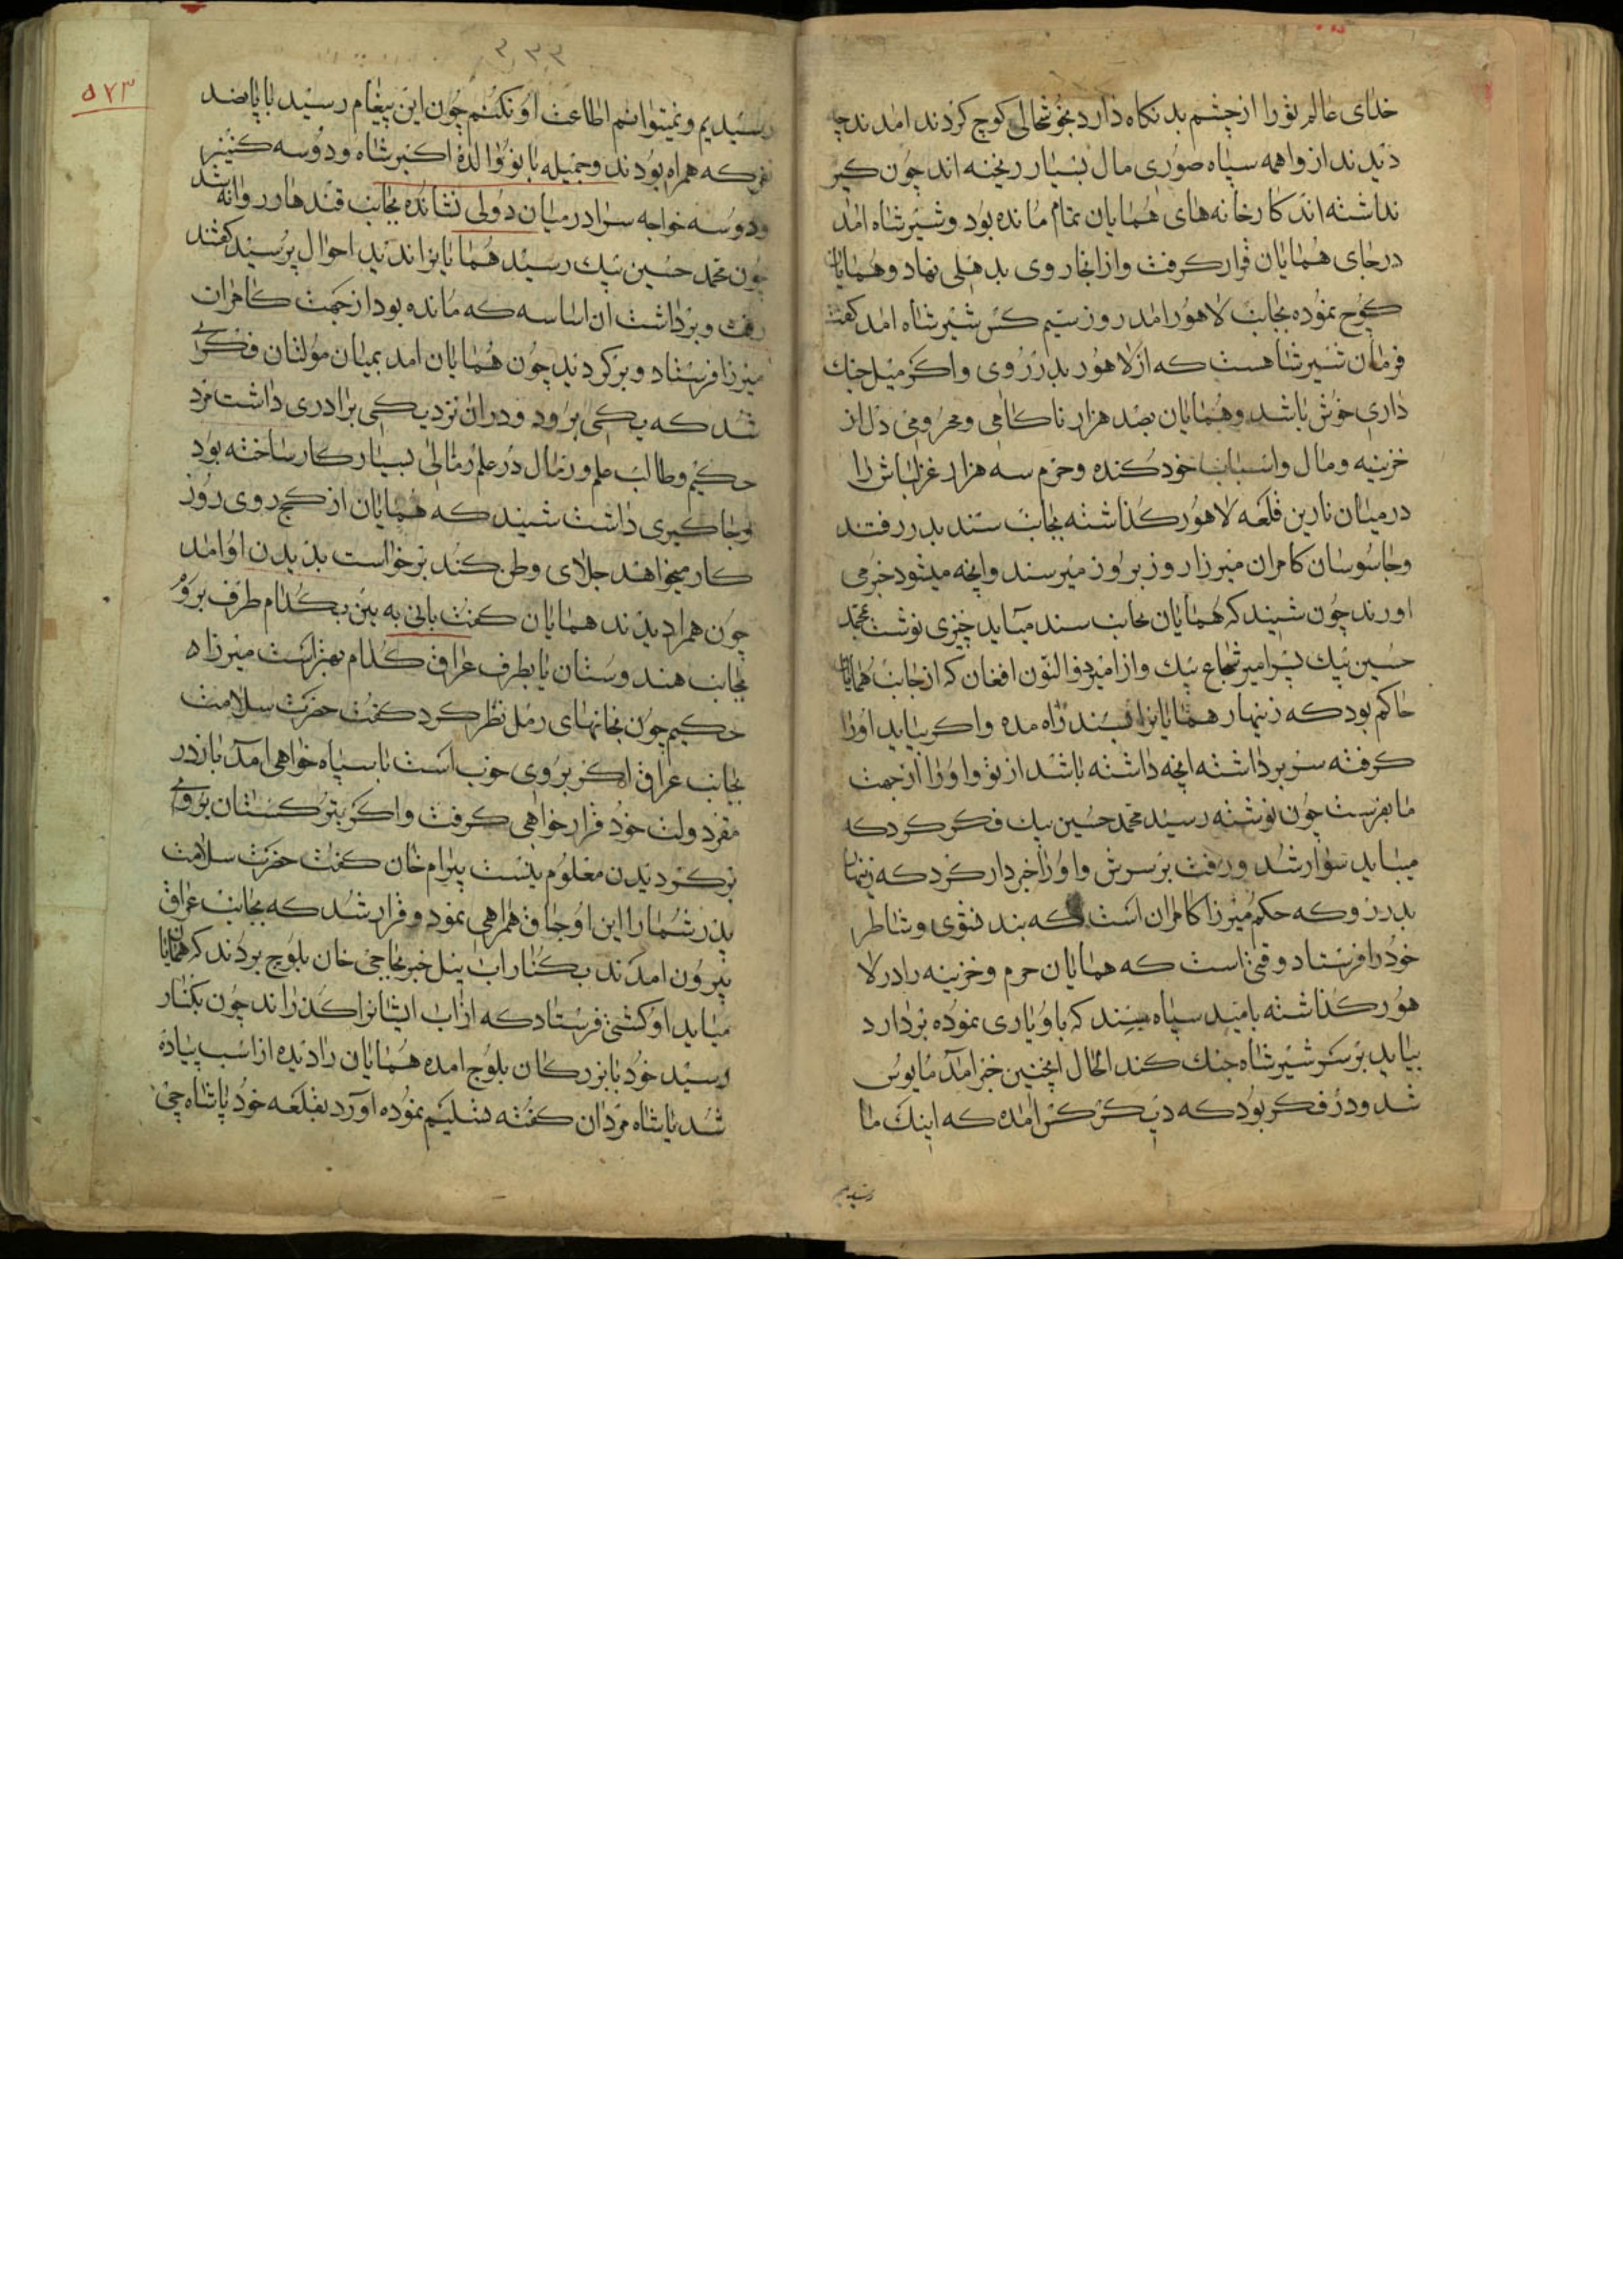 خدای عالم تو را از چشم بد نکاه دارد بخوشحالی کوچ کردند امدند چه
دیدند از واهمه سپاه صوری مال بسیار ریخته اند چون کیر
نداشته اند کارخانه های همایان تمام مانده بود و شیر شاه امد
در جای همایان قرار کرفت و از انجا روی بدهلی نهاد و همایان
کوچ نموده بجانب لاهور امد روز سیم کس شیر شاه امد کفت
فرمان شیر شاهست که از لاهور بدر روی و اکر میل جنك
داری خوش باشد و همایان بصد هزار ناکامی و محرومی دل از
خزینه و مال و اسباب خود کنده و حرم سه هزار غزلباش را
در میان نارین قلعه لاهور کذاشته بجانب سند بدر رفتند
و جاسوسان کامران میرزا روز بروز میرسند و انچه میشود خبر می
اورند چون شیند که همایان بجانب سند میاید چیزی نوشت بمحمد
حسین بیك پسر امیر شجاع بیك و از امیر ذوالنون افغان که از جانب همایان
حاکم بود که زینهار همایانرا بسند راه مده و اکر بیاید اورا
کرفته سر برداشته انچه داشته باشد از تو و اورا از جهت
ما بفرست چون نوشته رسید محمد حسین بیك فکر کرد که
میباید سوار شد و رفت بر سرش و اورا خبردار کرد که زینهار
بدر رو که حکم میرزا کامران است که بند فتوی و شاطر
خود را فرستاد وقتی است که همایان حرم و خزینه را در لا
هور کذاشته بامید سپاه سند که باو یاری نموده بردارد
بیاید بر سر شیر شاه جنك کند الحال اینچنین خبر امد مایوس
شد و در فکر بود که دیکر کس امده که اینك ما
رسیدیم
۲۳۳
۵۷۳
رسیدیم و نمیتوانیم اطاعت او نکنیم چون این پیغام رسید با پانصد
نفر که همراه بودند و جمیله بانو والده اکبر شاه و دو سه کنیز
و دو سه خواجه سرا در میان دولی نشانده بجانب قندهار روانه شد
چون محمد حسین بیك رسید همایانرا ندید احوال پرسید کفتند
رفت و برداشت ان اساسه که مانده بود از جهت کامران
میرزا فرستاد و برکردید چون همایان امد بمیان مولتان فکری
شد که بکی برود و دران نزدیکی برادری داشت مرد
حکیم و طالب علم و رمال در علم رمالی بسیار کار ساخته بود
و جاکیری داشت شیند که همایان از کج روی روز
کار میخواهد جلای وطن کند برخواست بدیدن او امد
چون همرا دیدند همایان کفت بانی به بین بکدام طرف برو
بجانب هندوستان یا بطرف عراق کدام بهتر است میرزاه
حکیم چون بخانهای رمل نظر کرد کفت حضرت سلامت
بجانب عراق اکر بروی خوب است با سپاه خواهی امد باز در
مقر دولت خود قرار خواهی کرفت و اکر بترکستان بروی
برکردیدن معلوم نیست بیرام خان کفت حضرت سلامت
پدر شما را این اوجاق همراهی نمود و قرار شد که بجانب عراق
بیرون امدند بکنار اب نیل خبر بحاجی خان بلوچ بردند که همایان
میاید او کشتی فرستاد که از اب ایشانرا کذراند چون بکنار
رسید خود با بزرکان بلوج امده همایان را دیده از اسب پیاده
شد یا شاه مردان کفته تسلیم نموده اورد بقلعه خود پاشاه چی